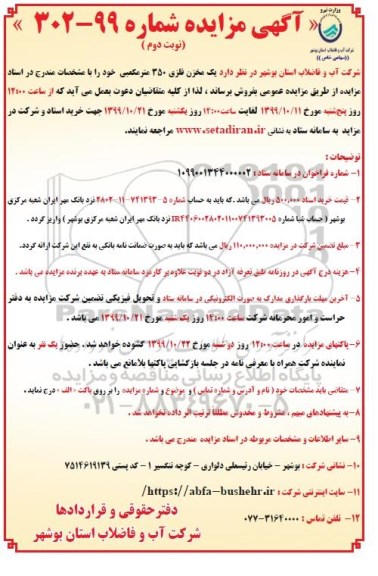 وزارت نیرو
« آگهی مزایده شماره ۹۹-۳۰۲ »
(نوبت دوم)
شرکت آب و فاضلاب استان بوشهر
(سهامی خاص)
شرکت آب و فاضلاب استان بوشهر در نظر دارد یک مخزن فلزی ۳۵۰ مترمکعبی خود را با مشخصات مندرج در اسناد
مزایده از طریق مزایده عمومی بفروش برساند ، لذا از کلیه متقاضیان دعوت بعمل می آید که از ساعت ۱۴:۰۰
روز پنجشنبه مورخ ۱۳۹۹/۱۰/۱۱ لغایت ساعت ۱۴:۰۰ روز یکشنبه مورخ ۱۳۹۹/۱۰/۲۱ جهت خرید اسناد و شرکت در
مزاید به سامانه ستاد به نشانی www.setadiran.ir مراجعه نمایند.
توضیحات :
۱- شماره فراخوان در سامانه ستاد : ۱۰۹۹۰۰۱۳۴۴۰۰۰۰۰۲
۲- قیمت خرید اسناد ۵۰۰,۰۰۰ ریال می باشد .که باید به حساب شماره ۵-۷۴۱۳۹۳-۱۱-۲۸۰۲ نزد بانک مهر ایران شعبه مرکزی
بوشهر ( حساب شبا شماره IR۴۲۰۶۰۰۲۸۰۲۰۱۱۰۰۷۴۱۳۹۳۰۰۵ نزد بانک مهر ایران شعبه مرکزی بوشهر ) واریز گردد .
۳- مبلغ تضمین شرکت در مزایده ۱۱۰,۰۰۰,۰۰۰ ریال می باشد که باید به صورت ضمانت نامه بانکی به نفع این شرکت ارائه گردد.
۴- هزینه درج آگهی در روزنامه طبق تعرفه آزاد در دو نوبت علاوه بر کارمزد سامانه ستاد به عهده برنده مزایده می باشد .
۵- آخرین مهلت بارگذاری مدارک به صورت الکترونیکی در سامانه ستاد و تحویل فیزیکی تضمین شرکت مزایده به دفتر
حراست و امور محرمانه شرکت ساعت ۱۴:۰۰ روز یکشنبه مورخ ۱۳۹۹/۱۰/۲۱ می باشد .
۶- پاکتهای مزایده در ساعت ۱۲:۰۰ روز دوشنبه مورخ ۱۳۹۹/۱۰/۲۲ گشوده خواهد شد . حضور یک نفر به عنوان
نماینده شرکت همراه با معرفی نامه در جلسه بازگشایی پاکتها بلامانع می باشد .
۷- متقاضی باید مشخصات خود ( نام و آدرس و شماره تماس ) و موضوع و شماره مزایده را بر روی پاکت - الف - درج نماید .
۸- به پیشنهادهای مبهم ، مشروط و مخدوش مطلقا ترتیب اثر داده نخواهد شد .
۹- سایر اطلاعات و مشخصات مربوطه در اسناد مزایده مندرج می باشد .
۱۰- نشانی شرکت : بوشهر - خیابان رئیسعلی دلواری - کوچه تنگسیر ۱ - کد پستی ۷۵۱۴۶۱۹۱۳۹
۱۱- سایت اینترنتی شرکت : https://abfa-bushehr.ir/
۱۲- تلفن تماس : ۳۱۶۴۰۰۰۰-۰۷۷
دفتر حقوقی و قراردادها
شرکت آب و فاضلاب استان بوشهر
پایگاه اطلاع رسانی مناقصه و مزایده
۰۲۱-۸۸۳۴۹۶۷۰-۵